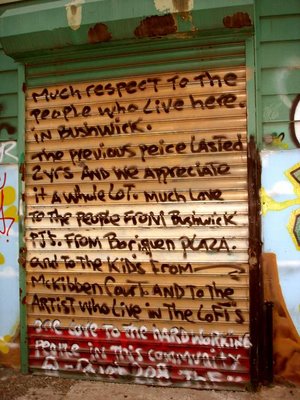 Much respect to the
people who live here.
in Bushwick.
the previous peice lasted
2yrs and we appreciate
it a whole lot. much love
to the people from Bushwick
PJ's. from Boriquen PLAZA.
and to the kids from
Mckibben Court and to the
Artist who live in the lofts
love to the hard working
people in this community